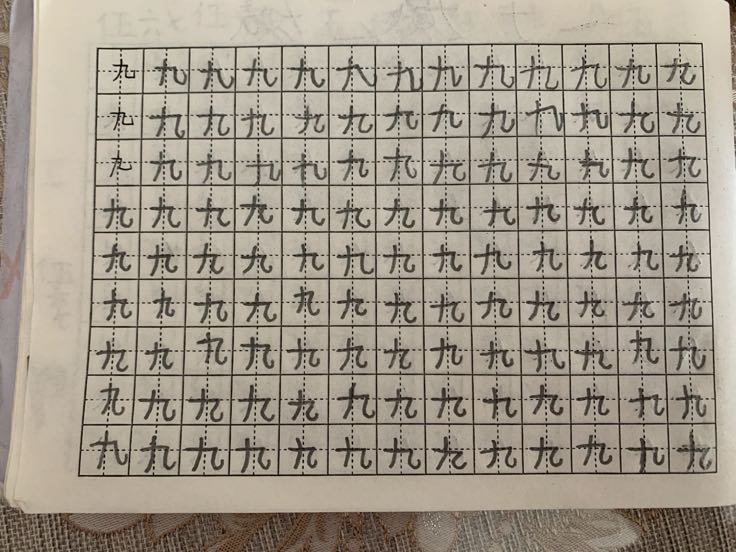 九 九 九 九 九 九 九 九 九 九 九 九 九
九 九 九 九 九 九 九 九 九 九 九 九 九
九 九 九 九 九 九 九 九 九 九 九 九 九
九 九 九 九 九 九 九 九 九 九 九 九 九
九 九 九 九 九 九 九 九 九 九 九 九 九
九 九 九 九 九 九 九 九 九 九 九 九 九
九 九 九 九 九 九 九 九 九 九 九 九 九
九 九 九 九 九 九 九 九 九 九 九 九 九
九 九 九 九 九 九 九 九 九 九 九 九 九